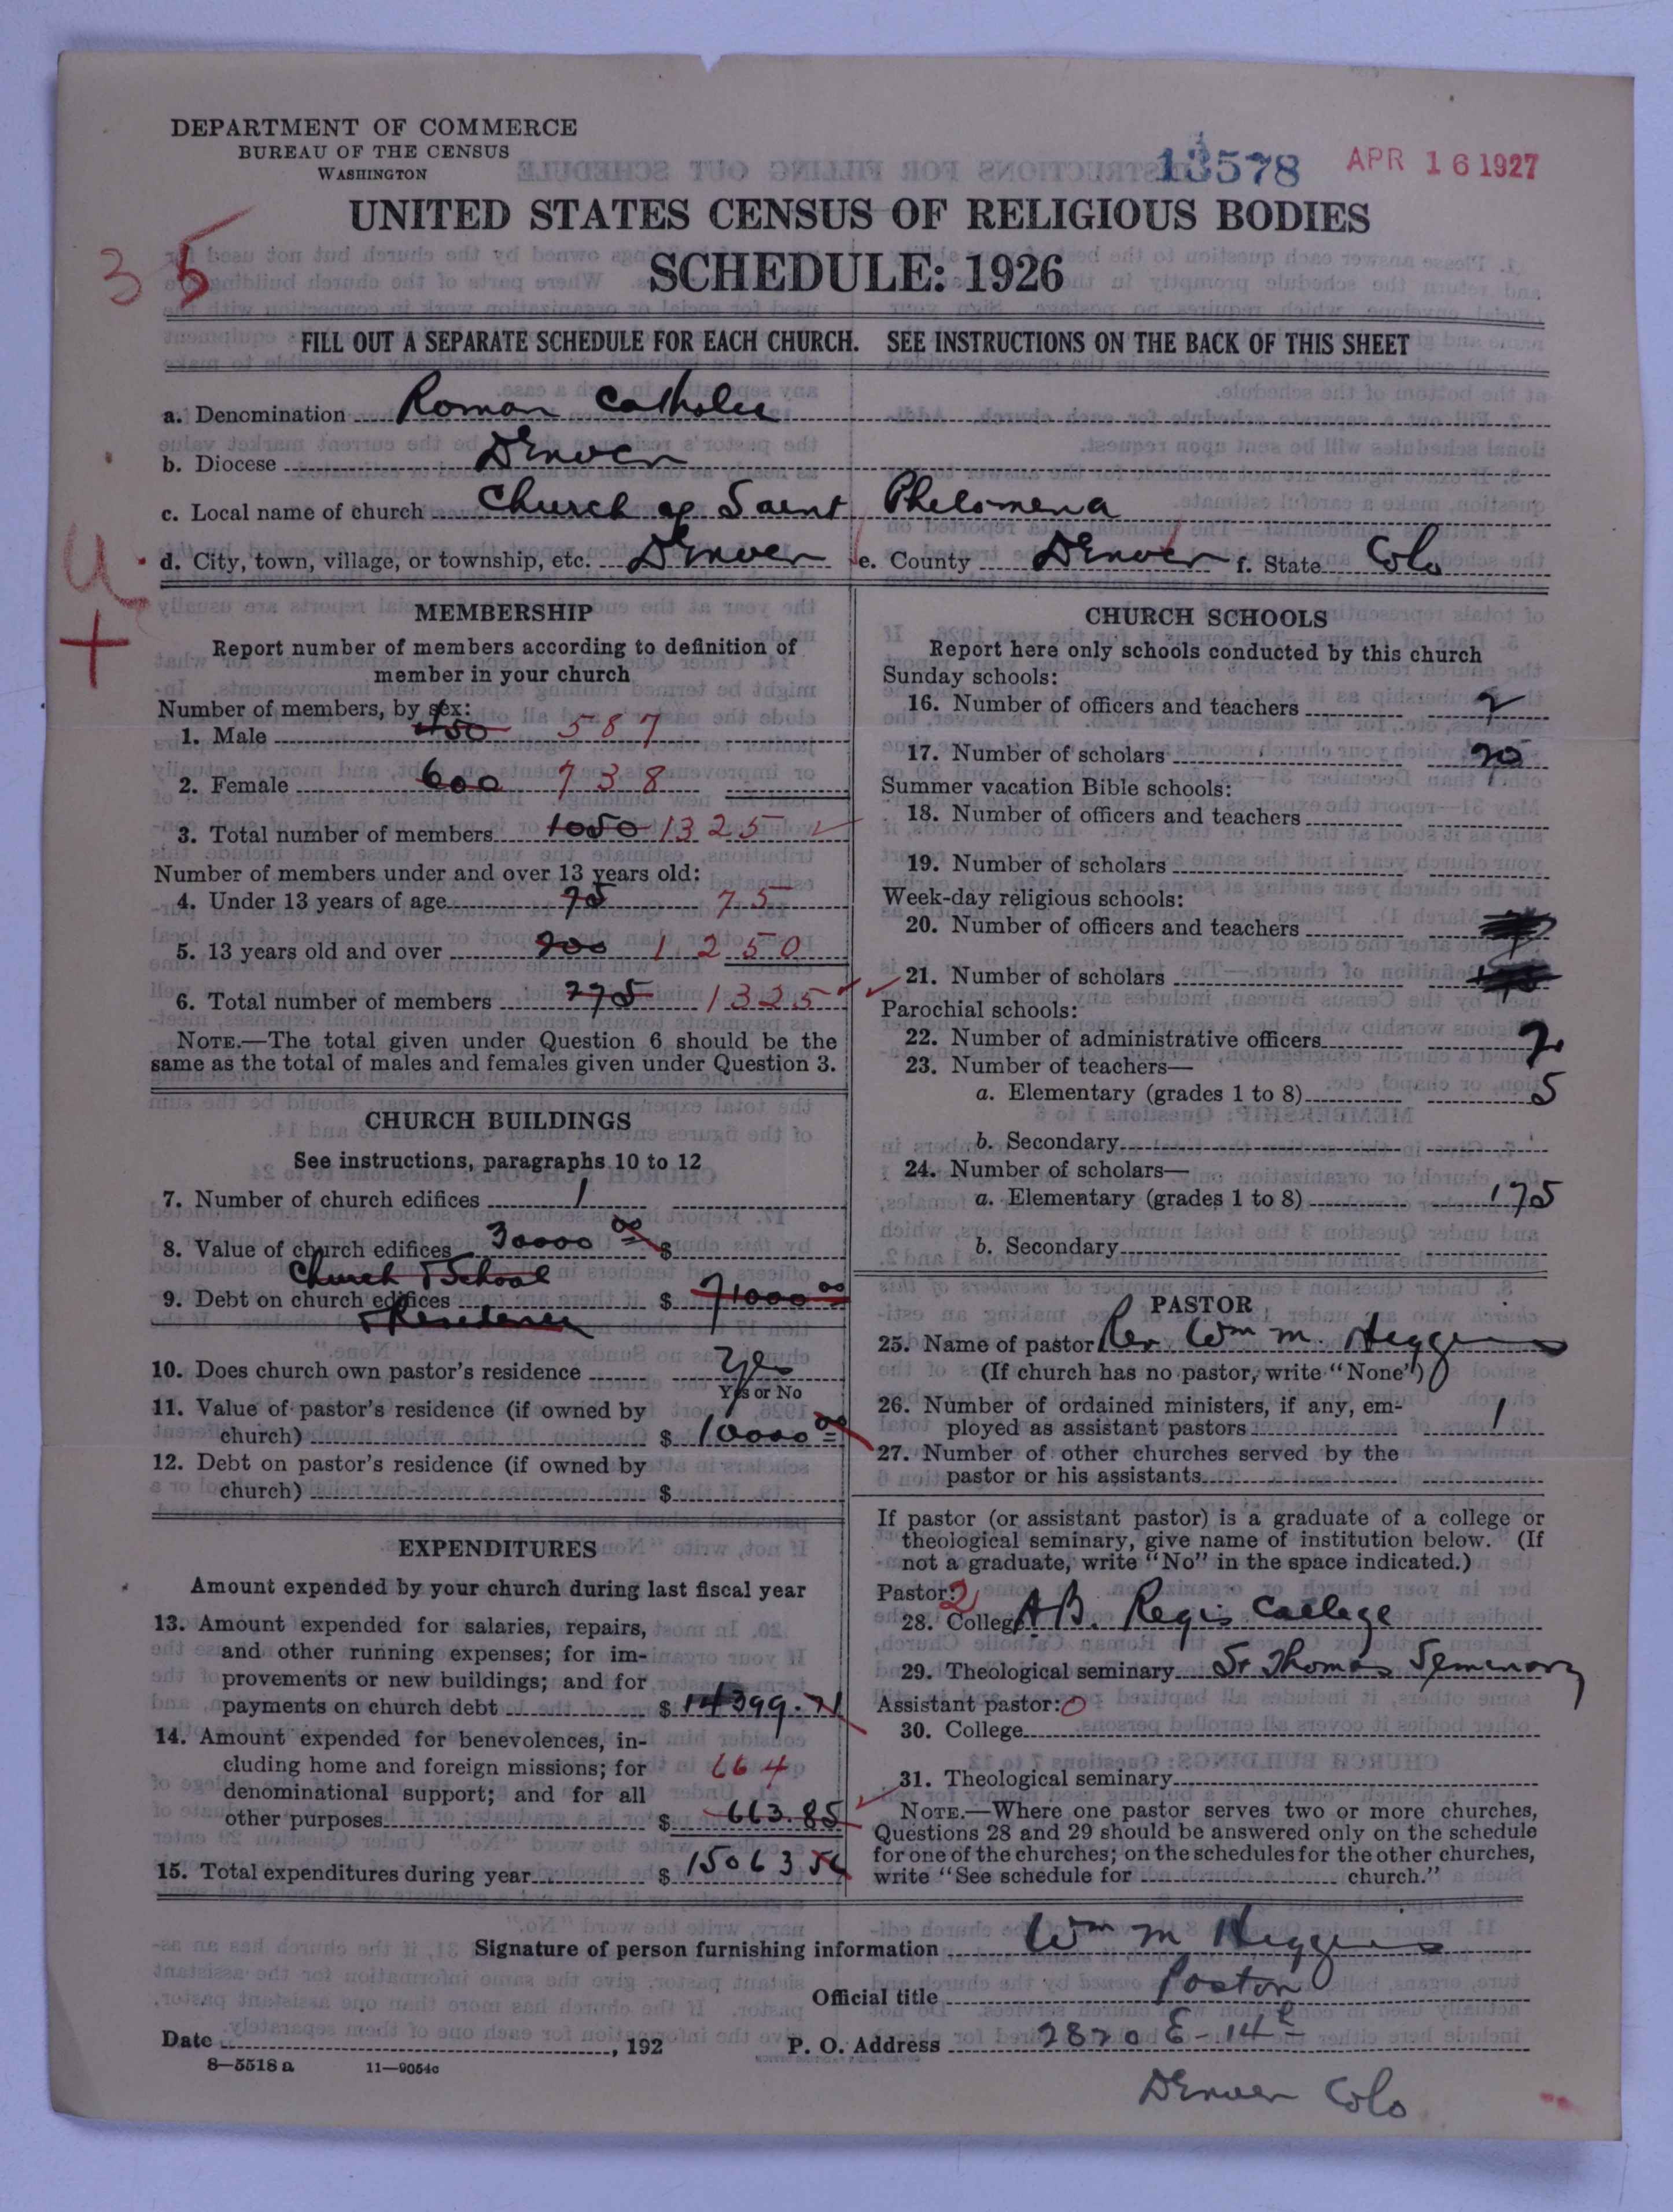 DEPARTMENT OF COMMERCE
BUREAU OF THE CENSUS
WASHINGTON
13578 APR 16 1927
UNITED STATES CENSUS OF RELIGIOUS BODIES
SCHEDULE: 1926
35
FILL OUT A SEPARATE SCHEDULE FOR EACH CHURCH. SEE INSTRUCTIONS ON THE BACK OF THIS SHEET
a. Denomination Roman Catholic
b. Diocese Denver
c. Local name of church Church of Saint Phelomena
d. City, town, village, or township, etc. Denver e. County Denver f. State Colo
MEMBERSHIP
Report number of members according to definition of
member in your church
Number of members, by sex:
1. Male 450 587
2. Female 600 738
3. Total number of members 1050 1325
Number of members under and over 13 years old:
4. Under 13 years of age 75 75
5. 13 years old and over 900 1 250
6. Total number of members 975 1325
NOTE.—The total given under Question 6 should be the
same as the total of males and females given under Question 3.
CHURCH BUILDINGS
See instructions, paragraphs 10 to 12
7. Number of church edifices 1
8. Value of church edifices 30000 00 $
Church & School
9. Debt on church edifices $ 71000 00
& Residence
10. Does church own pastor's residence Yes
Yes or No
11. Value of pastor's residence (if owned by
church) $ 10000 00
12. Debt on pastor's residence (if owned by
church) $
EXPENDITURES
Amount expended by your church during last fiscal year
13. Amount expended for salaries, repairs,
and other running expenses; for im-
provements or new buildings; and for
payments on church debt $ 14399.71
14. Amount expended for benevolences, in-
cluding home and foreign missions; for
664
denominational support; and for all
other purposes $ 663.85
15. Total expenditures during year $ 15063 56
CHURCH SCHOOLS
Report here only schools conducted by this church
Sunday schools:
16. Number of officers and teachers 2
17. Number of scholars 70
Summer vacation Bible schools:
18. Number of officers and teachers
19. Number of scholars
Week-day religious schools:
20. Number of officers and teachers
21. Number of scholars
Parochial schools:
22. Number of administrative officers 2
23. Number of teachers—
a. Elementary (grades 1 to 8) 5
b. Secondary
24. Number of scholars—
a. Elementary (grades 1 to 8) 175
b. Secondary
PASTOR
25. Name of pastor Rev Wm M. Higgins
(If church has no pastor, write "None")
26. Number of ordained ministers, if any, em-
ployed as assistant pastors 1
27. Number of other churches served by the
pastor or his assistants
If pastor (or assistant pastor) is a graduate of a college or
theological seminary, give name of institution below. (If
not a graduate, write "No" in the space indicated.)
Pastor: 2
28. College A B. Regis College
29. Theological seminary St Thomas Seminary
Assistant pastor: 0
30. College
31. Theological seminary
NOTE.—Where one pastor serves two or more churches,
Questions 28 and 29 should be answered only on the schedule
for one of the churches; on the schedules for the other churches,
write "See schedule for church."
Signature of person furnishing information Wm M Higgins
Official title Pastor
Date , 192 P. O. Address 2820 E-14th
8—5518 a 11—9054c
Denver Colo